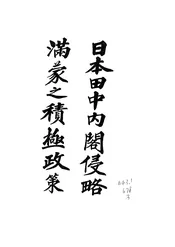 日本田中內閣侵略
滿蒙之積極政策